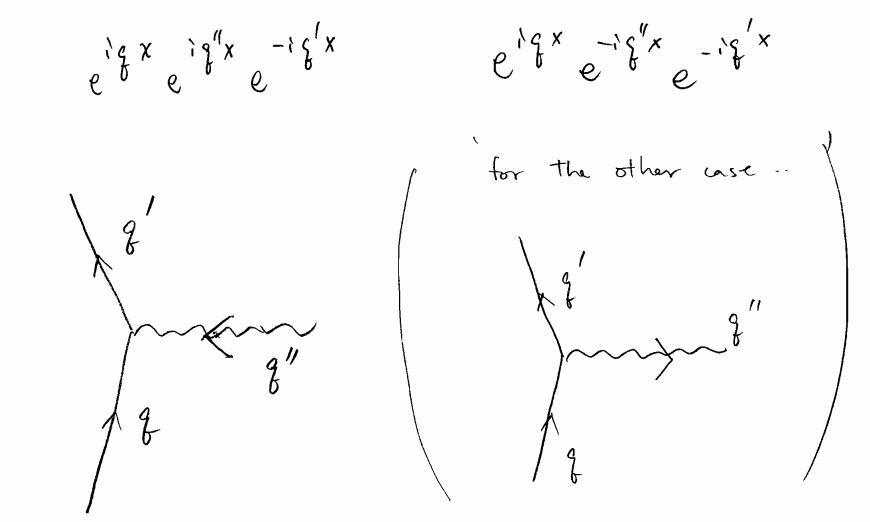 e^{iqx} e^{iq''x} e^{-iq'x}
e^{iqx} e^{-iq''x} e^{-iq'x}
for the other case ..
q'
q''
q
q'
q''
q